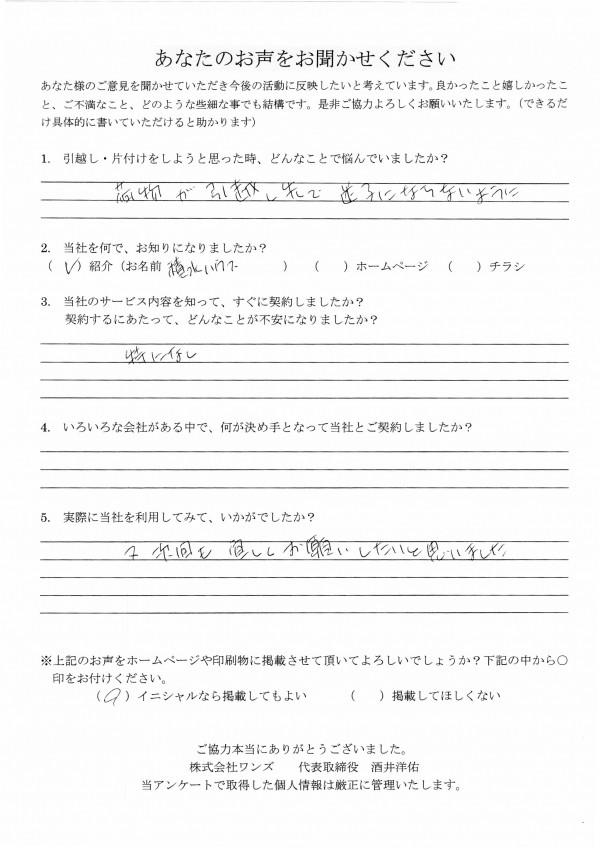 あなたのお声をお聞かせください
あなた様のご意見を聞かせていただき今後の活動に反映したいと考えています。良かったこと嬉しかったこ
と、ご不満なこと、どのような些細な事でも結構です。是非ご協力よろしくお願いいたします。（できるだ
け具体的に書いていただけると助かります）
1. 引越し・片付けをしようと思った時、どんなことで悩んでいましたか？
荷物が引越し先で迷子にならないように
2. 当社を何で、お知りになりましたか？
（ レ ）紹介（お名前 積水ハウス ） （ ）ホームページ （ ）チラシ
3. 当社のサービス内容を知って、すぐに契約しましたか？
契約するにあたって、どんなことが不安になりましたか？
特になし
4. いろいろな会社がある中で、何が決め手となって当社とご契約しましたか？
5. 実際に当社を利用してみて、いかがでしたか？
次回も宜しくお願いしたいと思いました
※上記のお声をホームページや印刷物に掲載させて頂いてよろしいでしょうか？下記の中から〇
印をお付けください。
（ ○ ）イニシャルなら掲載してもよい （ ）掲載してほしくない
ご協力本当にありがとうございました。
株式会社ワンズ 代表取締役 酒井洋佑
当アンケートで取得した個人情報は厳正に管理いたします。